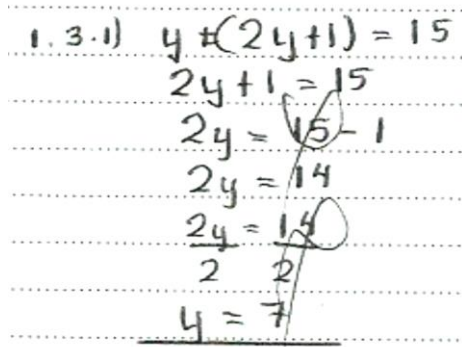 1.3.1) y +(2y+1) = 15
2y+1 = 15
2y = 15 - 1
2y = 14
2y/2 = 14/2
y = 7